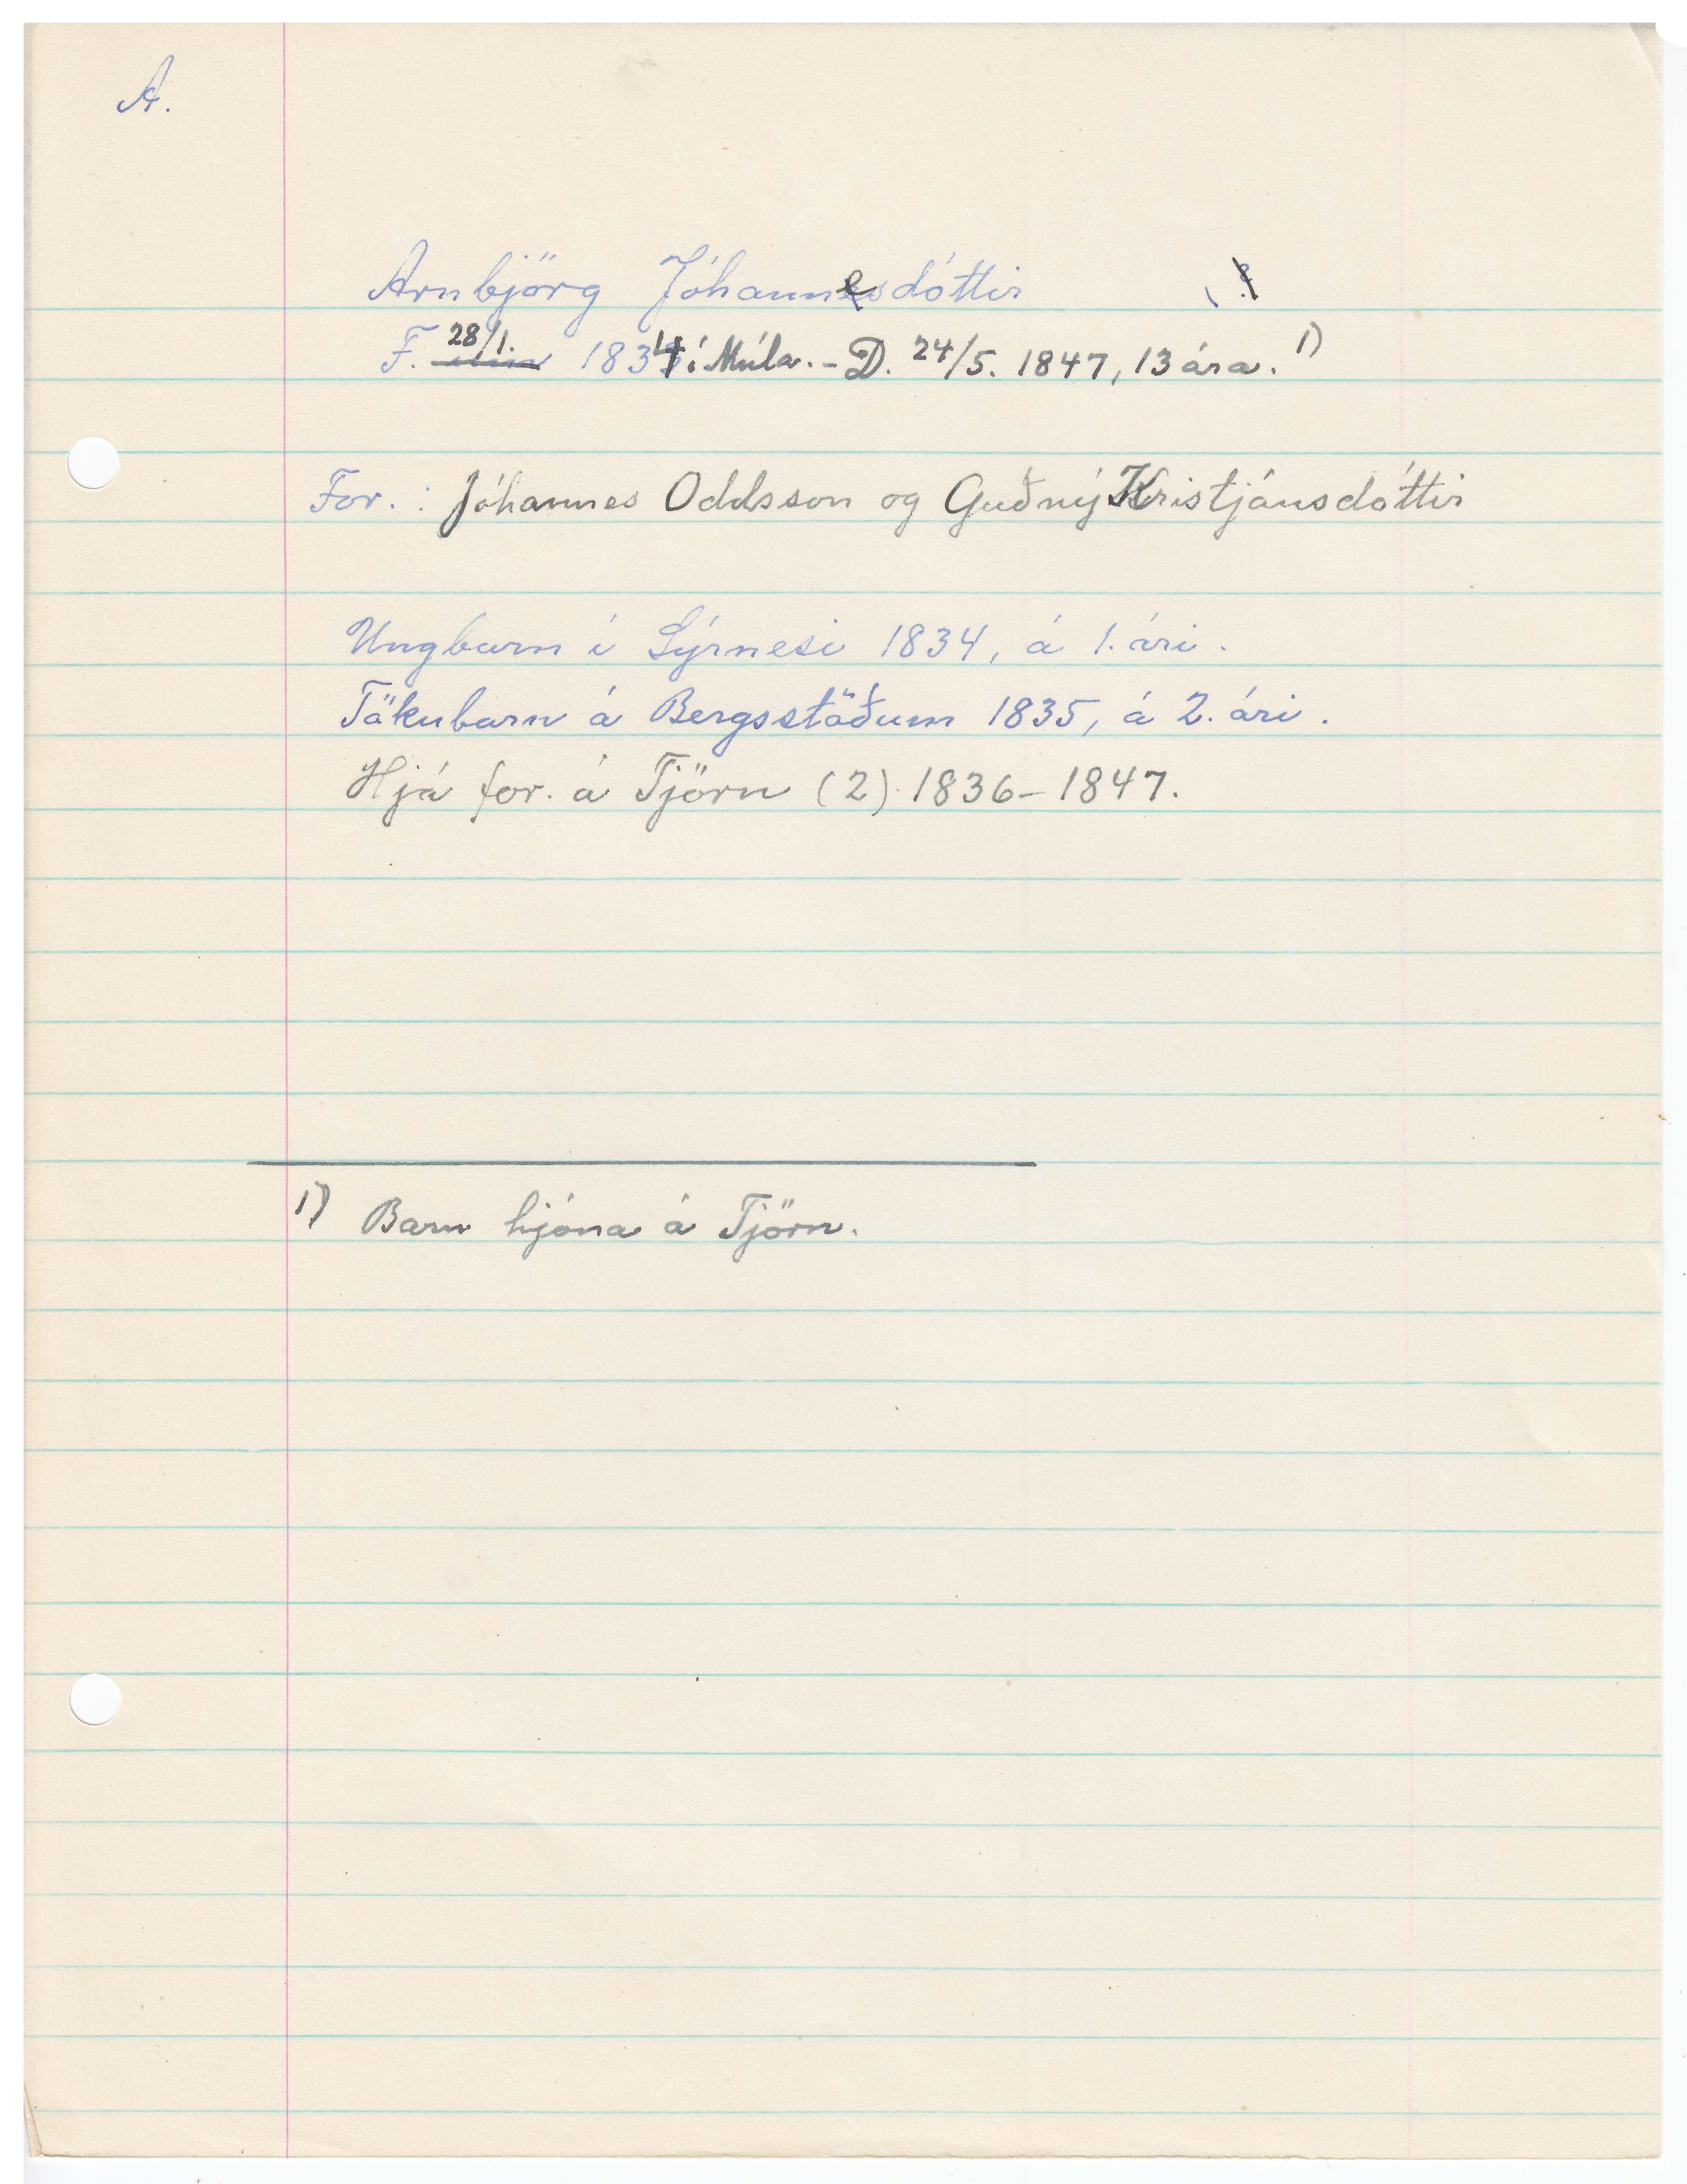 A.
Arnbjörg Jóhannesdóttir
F. 28/1. 1834 í Múla. - D. 24/5. 1847, 13 ára. 1)
For.: Jóhannes Oddsson og Guðný Kristjánsdóttir
Ungbarn í Sýrnesi 1834, á 1. ári.
Tökubarn á Bergsstöðum 1835, á 2. ári.
Hjá for. á Tjörn (2) 1836-1847.
1) Barn hjóna á Tjörn.